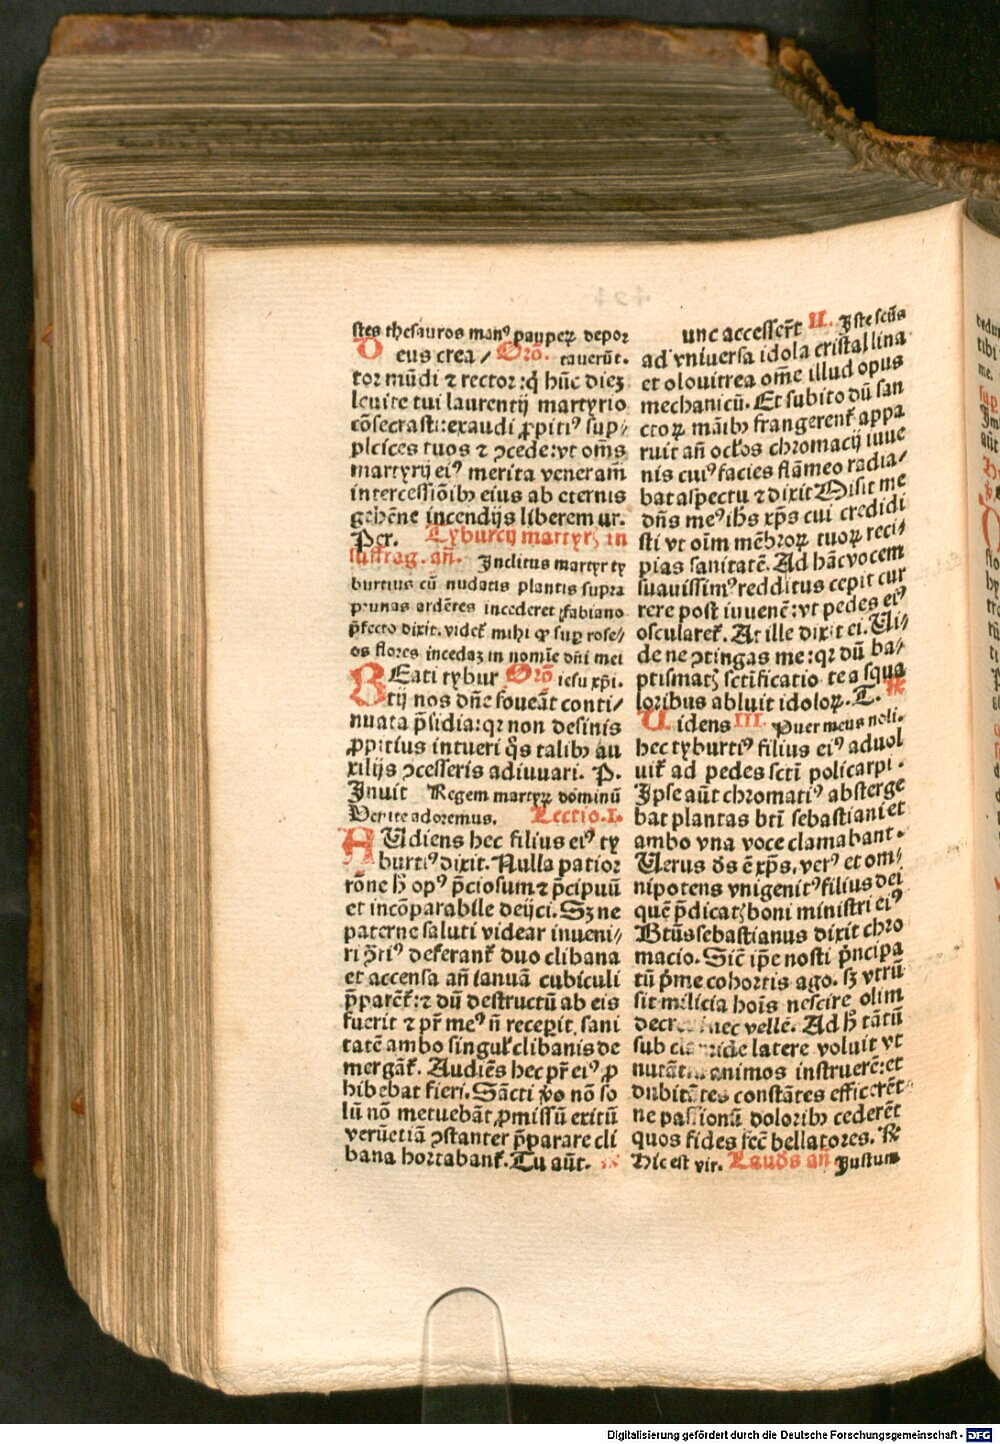 stes thesauros manꝰ pauperꝝ depor
D eus crea / Orō. tauerūt.
tor mūdi ⁊ rector: q̇ hūc dieʒ
leuite tui laurentij martyrio
cōsecrasti: exaudi ꝓpitiꝰ sup/
plcices tuos ⁊ ꝯcede: vt oms̄
martyrij eiꝰ merita veneram̄
intercessiōibꝫ eius ab eternis
gehēne incendijs liberemur.
Per. Tyburcij martyrꝭ in
suffrag. an̄. Inclitus martyr ty
burtius cū nudatis plantis supra
prunas ardētes incederet fabiano
p̄fecto dixit. videt᷑ mihi ꝙ suꝑ rose/
os flores incedaʒ in nomīe dn̄i mei
B Eati tybur Orō iesu xp̄i.
tij nos dn̄e foueāt conti/
nuata p̄sidia: qꝛ non desinis
ꝓpitius intueri q̇s talibꝫ au
xilijs ꝯcesseris adiuuari. P.
Inuit Regem martyrꝝ dominū
Venite adoremus. Lectio. I.
A Udiens hec filius eiꝰ ty
burtiꝰ dixit. Nulla patior
rōne h̄ opꝰ p̄ciosum ⁊ p̄cipuū
et incōparabile deijci. Sʒ ne
paterne saluti videar inueni/
ri ꝯ̄triꝰ deferant᷑ duo clibana
et accensa an̄ ianuā cubiculi
p̄parēt᷑: ⁊ dū destructū ab eis
fuerit ⁊ pr̄ meꝰ n̄ recepit sani
tatē ambo singul᷑ clibanis de
mergāt᷑. Audiēs hec pr̄ eiꝰ ꝓ
hibebat fieri. Sācti ꝟo nō so
lū nō metuebāt ꝓmissū exitū
verūetiā ꝯstanter p̄parare cli
bana hortabant᷑. Tu aūt. ꝶ
unc accesser̄t II. Iste scūs
ad vniuersa idola cristallina
et olouitrea om̄e illud opus
mechanicū. Et subito dū san
ctoꝝ māibꝫ frangerent᷑ appa
ruit an̄ ocl̄os chromacij iuue
nis cuiꝰ facies flāmeo radia/
bat aspectu ⁊ dixit Misit me
dn̄s meꝰ ihs xp̄s cui credidi
sti vt oīm mēbroꝝ tuoꝝ reci/
pias sanitatē. Ad hāc vocem
suauissimꝰ redditus cepit cur
rere post iuuenē: vt pedes eiꝰ
oscularet᷑. At ille dixit ei. Ui/
de ne ꝯtingas me: qꝛ dū ba/
ptismatꝭ sctīficatio te a squa
loribus abluit idoloꝝ. T. ꝶ
U idens III. Puer meus noli.
hec tyburtiꝰ filius eiꝰ aduol
uit᷑ ad pedes sctī policarpi.
Ipse aūt chromatiꝰ absterge
bat plantas btī sebastiani et
ambo vna voce clamabant.
Uerus ds̄ ē xp̄s, verꝰ et om/
nipotens vnigenitꝰ filius dei
quē p̄dicatꝭ boni ministri eiꝰ
Btūs sebastianus dixit chro
macio. Sic̄ ip̄e nosti p̄ncipa
tū p̄me cohortis ago. sʒ vtrū
sit milicia hoīs nescire olim
nec vellē. Ad h̄ tātū
sub latere voluit vt
animos instruerē: et
dubitātes constātes efficerēt
ne passionū doloribꝫ cederēt
quos fides fec̄ bellatores. ꝶ
Hic est vir. Lauds an̄ Justum
Digitalisierung gefördert durch die Deutsche Forschungsgemeinschaft - DFG